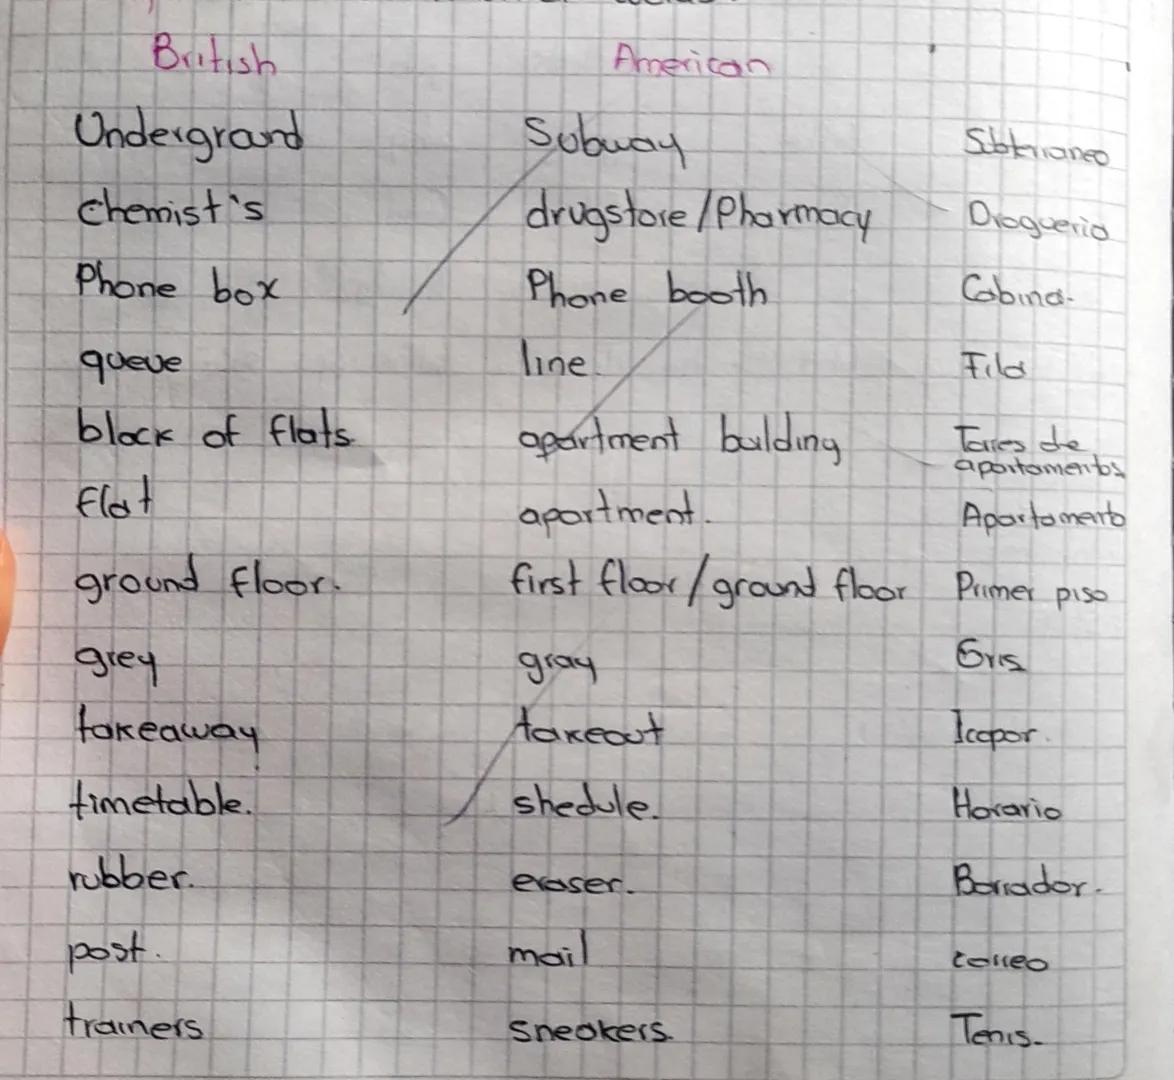 British American
Undergrand Subway Subterraneo
chemist's drugstore/Pharmacy Drogueria
Phone box Phone booth Cabina.
queue line. Fila
block of flats. apartment bulding Torres de
apartamentos
flat apartment. Apartamento
ground floor. first floor/ground floor Primer piso
grey gray Gris
takeaway takeout Icopor.
timetable. shedule. Horario
rubber. eraser. Borrador.
post. mail correo
trainers sneakers. Tenis.